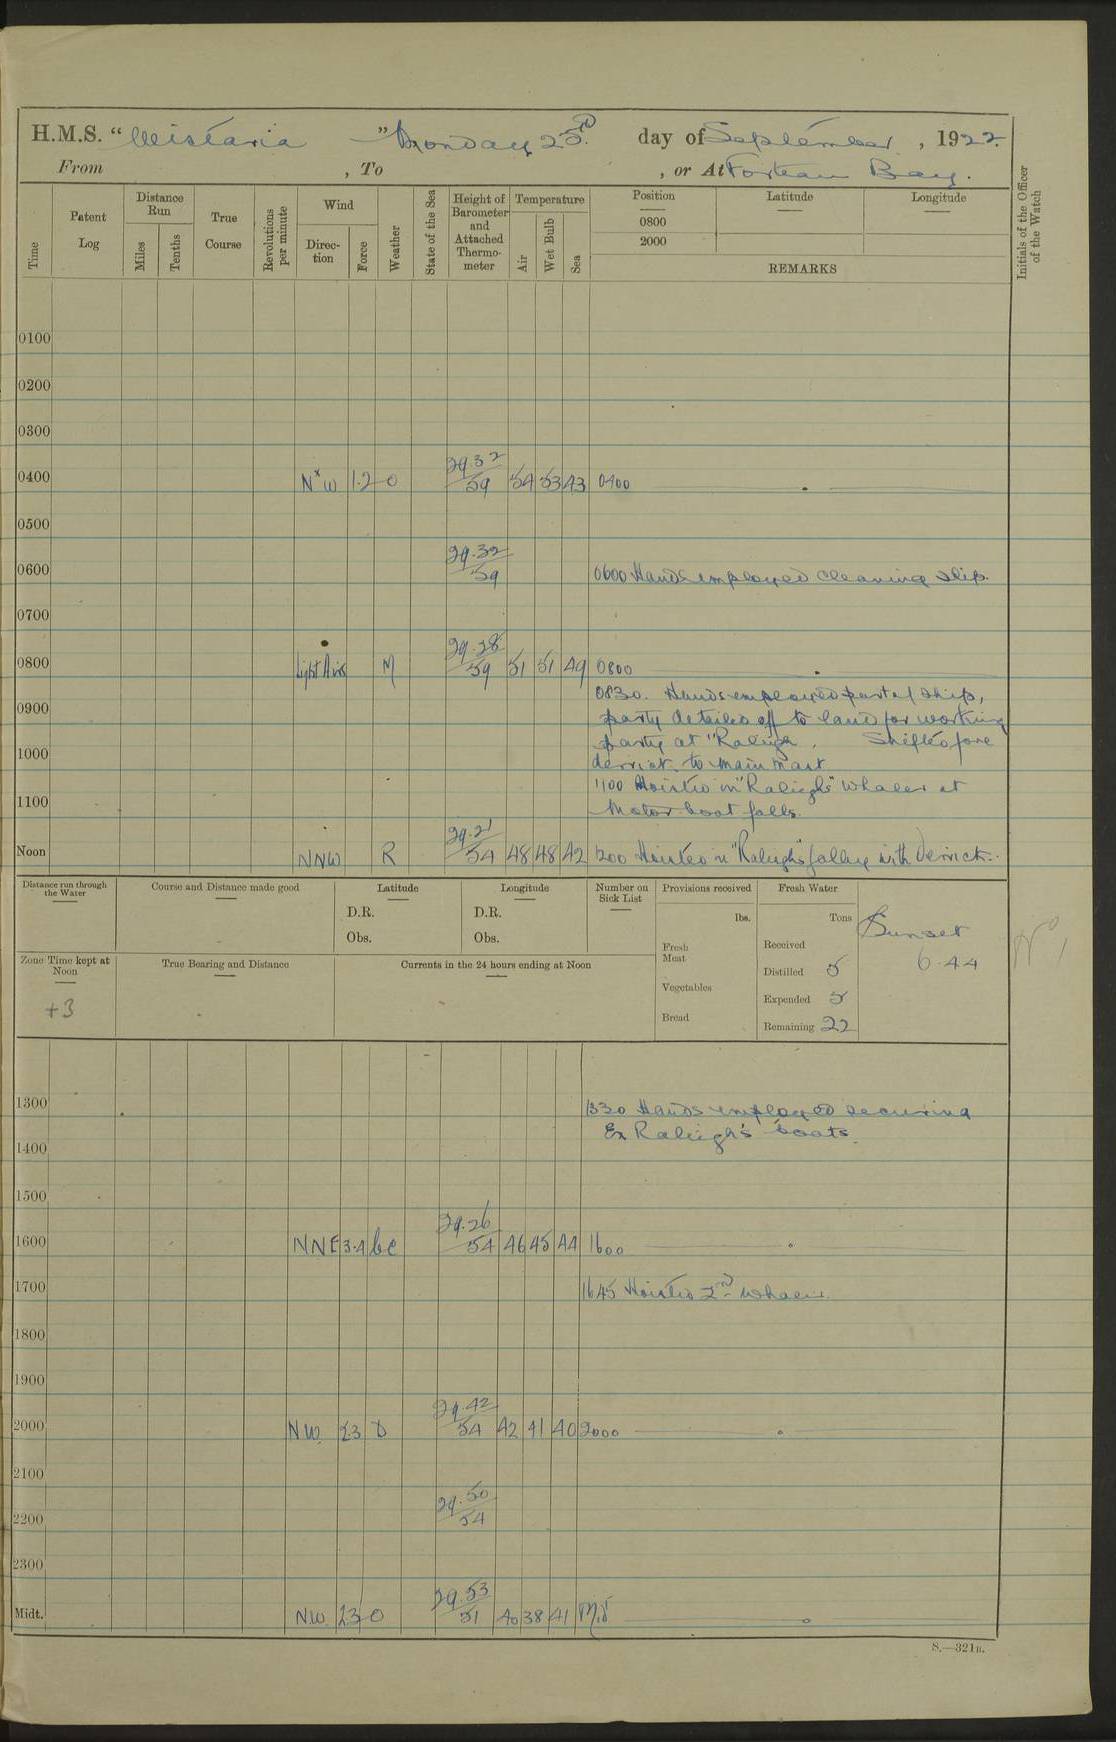 H.M.S. “Wistaria” Monday 25th day of September, 1922.
From , To , or At Forteau Bay.
Time
Patent Log
Distance Run
Miles
Tenths
True Course
Revolutions per minute
Wind
Direction
Force
Weather
State of the Sea
Height of Barometer and Attached Thermometer
Temperature
Air
Wet Bulb
Sea
Position
0800
2000
Latitude
Longitude
REMARKS
Initials of the Officer of the Watch
0100
0200
0300
0400 NxW 1.2 o 29.32/59 54 53 43 0400
0500
0600 29.32/59 0600 Hands employed cleaning ship.
0700
0800 Light Airs M 29.28/59 51 51 49 0800
0830. Hands employed part of ship,
0900 party detailed off to land for working
party at "Raleigh. Shifted fore
1000 derrick to main mast
1100 Hoisted in "Raleigh's" whaler at
1100 Motor boat falls.
Noon NNW R 29.21/54 48 48 42 1200 Hoisted in "Raleigh's" galley with derrick.
Distance run through the Water
Course and Distance made good
Latitude
D.R.
Obs.
Longitude
D.R.
Obs.
Number on Sick List
Provisions received
lbs.
Fresh Meat
Vegetables
Bread
Fresh Water
Tons
Received
Distilled 5
Expended 5
Remaining 22
Sunset
6.44
Zone Time kept at Noon
+3
True Bearing and Distance
Currents in the 24 hours ending at Noon
1300 1330 Hands employed securing
Ex Raleigh's boats.
1400
1500
1600 NNE 3.4 bc 29.26/54 46 45 44 1600
1700 1645 Hoisted 2nd whaler.
1800
1900
2000 NW. 2.3 29.42/54 42 41 40 2000
2100
2200 29.50/54
2300
Midt. NW. 2.3 o 29.53/51 40 38 41 Mid
S.—321B.